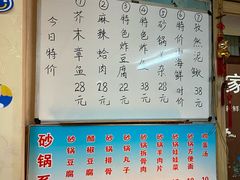 今日特价
①芥末章鱼28元
②麻辣蛤肉28元
③特色炸豆腐22元
④特色炸
⑤砂锅杂
⑥特价小海鲜时价
⑦孜然泥鳅38元
家
砂锅系
砂锅豆腐
醋椒豆腐
砂锅排骨
砂锅丸子
砂锅拆骨肉
砂锅羊肉片
砂锅娃娃菜
砂锅方便面
疙瘩汤